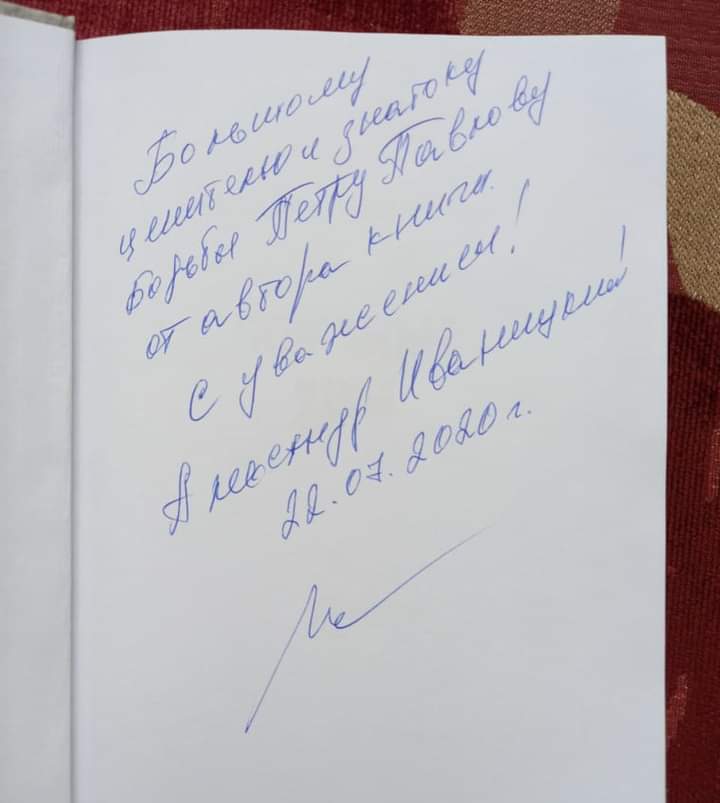 Большому
ценителю и знатоку
борьбы Петру Павлову
от автора книги.
С уважением!
Александр Иваницкий!
22.07.2020 г.